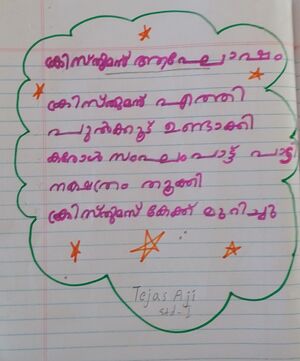 ക്രിസ്തുമസ് ആഘോഷം
ക്രിസ്തുമസ് എത്തി
പുൽക്കൂട് ഉണ്ടാക്കി
കരോൾ സംഘം പാട്ട് പാടി
നക്ഷത്രം തൂക്കി
ക്രിസ്തുമസ് കേക്ക് മുറിച്ചു
Tejas Aji
std-I